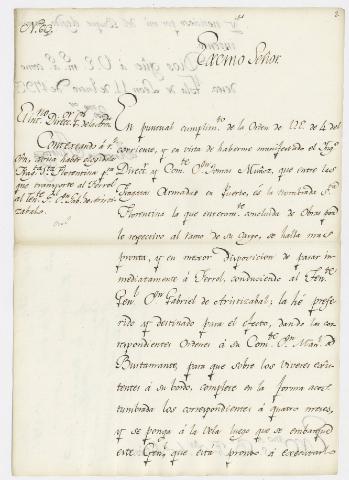 Nº 63.
2
Exc̃mo Señor.
Contextando á rl.
orn, avisa haber elegido la
Frag.ta S.ta Florentina p.ra
que transporte al Ferrol
al Ten.te G.l Dn Gab.l de Aristi-
zabal.
En puntual cumplim.to de la Orden de V.E. de 4 del
corriente, y en vista de haberme manifestado el Ing.o
Direct.r y Com.te Dn Tomas Muñoz, que entre las
Fragatas Armadas en Puerto, es la nombrada S.ta
Florentina la que enteram.te concluida de Obras por
lo respectivo al ramo de su cargo, se halla mas
pronta, y en mejor disposicion de pasar in-
mediatamente á Ferrol, conduciendo al Ten.te
Gen.l Dn Gabriel de Aristizabal; la hé prefe-
rido y destinado para el efecto, dando las cor-
respondientes Ordenes á su Com.te Dn Man.l de
Bustamante, para que sobre los Viveres exis-
tentes á su bordo, complete en la forma acos-
tumbrada los correspondientes á quatro meses,
y se ponga á la Vela luego que se embarque
este Gen.l que está pronto á executarlo